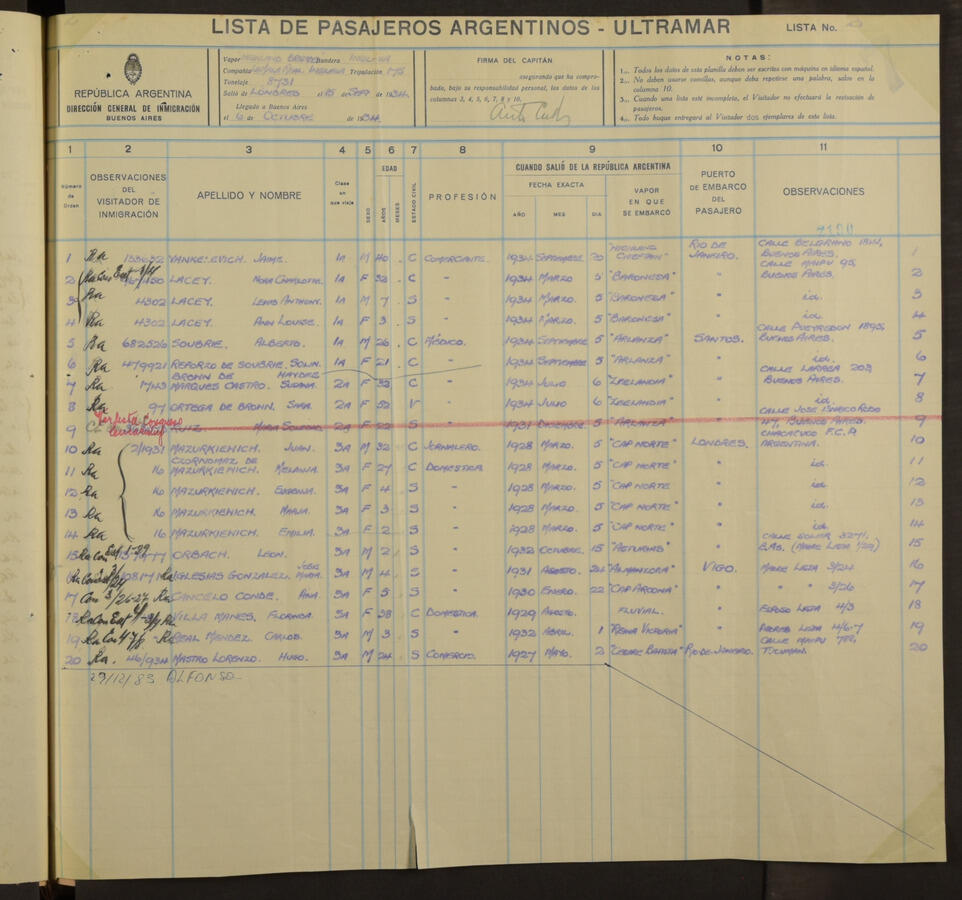 LISTA DE PASAJEROS ARGENTINOS - ULTRAMAR
LISTA No.
REPÚBLICA ARGENTINA
DIRECCIÓN GENERAL DE INMIGRACIÓN
BUENOS AIRES
Vapor Bandera
Compañía Tripulación 175
Tonelaje 8731
Salió de LONDRES el 15 de SEP. de 1934
Llegado a Buenos Aires
el 6 de OCTUBRE de 1934
FIRMA DEL CAPITÁN
asegurando que ha compro-
bado, bajo su responsabilidad personal, los datos de las
columnas 3, 4, 5, 6, 7, 8, 9, 10.
NOTAS:
1... Todos los datos de esta planilla deben ser escritos con máquina en idioma español.
2... No deben usarse comillas, aunque deba repetirse una palabra, salvo en la
columna 10.
3... Cuando una lista esté incompleta, el Visitador no efectuará la revisación de
pasajeros.
4... Todo buque entregará al Visitador dos ejemplares de esta lista.
1 2 3 4 5 6 7 8 9 10 11
Número de Orden
OBSERVACIONES DEL VISITADOR DE INMIGRACIÓN
APELLIDO Y NOMBRE
Clase en que viaja
SEXO
EDAD
AÑOS
MESES
ESTADO CIVIL
PROFESIÓN
CUANDO SALIÓ DE LA REPÚBLICA ARGENTINA
FECHA EXACTA
AÑO MES DIA
VAPOR EN QUE SE EMBARCÓ
PUERTO DE EMBARCO DEL PASAJERO
OBSERVACIONES
1 Ra YANKELEVICH. JAIME. 1A M 40 C COMERCIANTE. 1934 SEPTIEMBRE 20 "HIGHLAND CHIEFTAIN" RIO DE JANEIRO. CALLE BELGRANO 1844, BUENOS AIRES. 1
2 LACEY. NORA CHARLOTTE. 1A F 32 C " 1934 MARZO 5 "BARONESA" CALLE MAIPU 95, BUENOS AIRES. 2
3 Ra 4302 LACEY. LEWIS ANTHONY. 1A M 7 S " 1934 MARZO. 5 "BARONESA" id. 3
4 Ra 4302 LACEY. ANN LOUISE. 1A F 3 S " 1934 MARZO. 5 "BARONESA" id. 4
5 Ra 682526 SOUBRIE. ALBERTO. 1A M 26 C MÉDICO. 1934 SEPTIEMBRE 5 "ARLANZA" SANTOS. CALLE PUEYRREDON 1895, BUENOS AIRES. 5
6 Ra 479921 REPORZO DE SOUBRIE. 1A F 21 C " 1934 SEPTIEMBRE 5 "ARLANZA" id. 6
7 Ra 1743 BRONN DE MARQUES CASTRO. SUSANA. 2A F 32 C " 1934 JULIO 6 "ZEELANDIA" BUENOS AIRES. 7
8 Ra 97 ORTEGA DE BRONN. SARA. 2A F 52 V " 1934 JULIO 6 "ZEELANDIA" id. 8
9 RUIZ MARIA 2A F 22 S " 1931 DICIEMBRE 5 "ARLANZA" BUENOS AIRES. 9
10 Ra 2/1931 MAZURKIEHICH. JUAN. 3A M 32 C JORNALERO. 1928 MARZO. 5 "CAP NORTE" LONDRES. CHACABUCO F.C.P. ARGENTINA. 10
11 Ra 16 CZORNOMAZ DE MAZURKIEHICH. MELANIA. 3A F 27 C DOMESTICA 1928 MARZO. 5 "CAP NORTE" id. 11
12 Ra 16 MAZURKIEHICH. EUGENIA. 3A F 4 S " 1928 MARZO. 5 "CAP NORTE id. 12
13 Ra 16 MAZURKIEHICH. MARIA. 3A F 3 S " 1928 MARZO. 5 "CAP NORTE" id. 13
14 Ra 16 MAZURKIEHICH. EMILIA. 3A F 2 S " 1928 MARZO. 5 "CAP NORTE" id. 14
15 ORBACH. LEON. 3A M 2 S " 1932 OCTUBRE. 15 "ASTURIAS" 15
16 IGLESIAS GONZALEZ. JOSE MARIA. 3A M 4 S " 1931 AGOSTO. "ALMANZORA" VIGO. MADRE LISTA 3/24 16
17 Con 3/26-27 CANCELO CONDE. ANA. 3A F 5 S " 1930 ENERO. 22 "CAP ARCONA" " " 3/26 17
18 VILLA MANES. FLORINDA. 3A F 38 C DOMESTICA. 1929 AGOSTO. FLUVIAL. ESPOSO LISTA 4/3 18
19 REAL MENDEZ. CARLOS. 3A M 3 S " 1932 ABRIL. 1 "REINA VICTORIA" PADRES LISTA 4/6-7 19
20 Ra. 46/934 MASTRO LORENZO. HUGO. 3A M 24 S COMERCIO. 1927 MAYO. 2 "CESARE BATTISTI" RIO DE JANEIRO. CALLE MAIPU 788, TUCUMAN. 20
29/12/83 ALFONSO